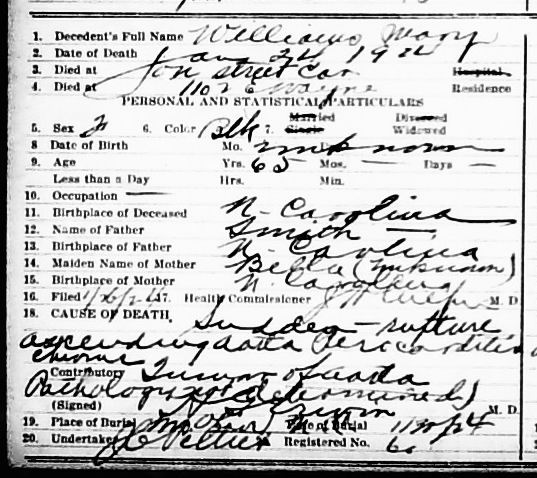 1. Decedent's Full Name Williams Mary
2. Date of Death Jan 24 1924
3. Died at on street car Hospital
4. Died at 1102 E Wayne Residence
PERSONAL AND STATISTICAL PARTICULARS
Married Divorced
5. Sex F 6. Color Blk 7. Single Widowed
8 Date of Birth Mo. unknown
9. Age Yrs. 65 Mos. — Days —
Less than a Day Hrs. Min.
10. Occupation —
11. Birthplace of Deceased N. Carolina
12. Name of Father Smith —
13. Birthplace of Father N. Carolina
14. Maiden Name of Mother Bella (unknown)
15. Birthplace of Mother N. Carolina
16. Filed 1/26/24 17. Health Commissioner M. D.
18. CAUSE OF DEATH, Sudden - rupture
ascending aorta Pericarditis
chronic
Contributory Tumor of aorta
Pathology not determined)
(Signed) M. D.
19. Place of Burial Date of Burial 1/30/24
20. Undertaker J C Peltier Registered No. 60